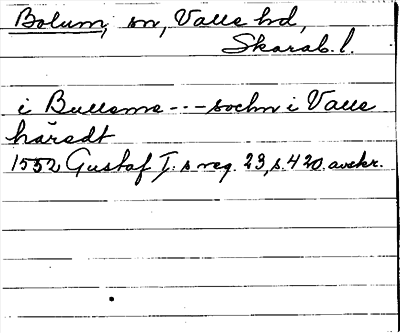 Bolum, sn, Valle hd,
Skarab. l.
i Bullema --- sochn i Valle
häredt
1552 Gustaf I:s reg. 23, s. 420. avskr.